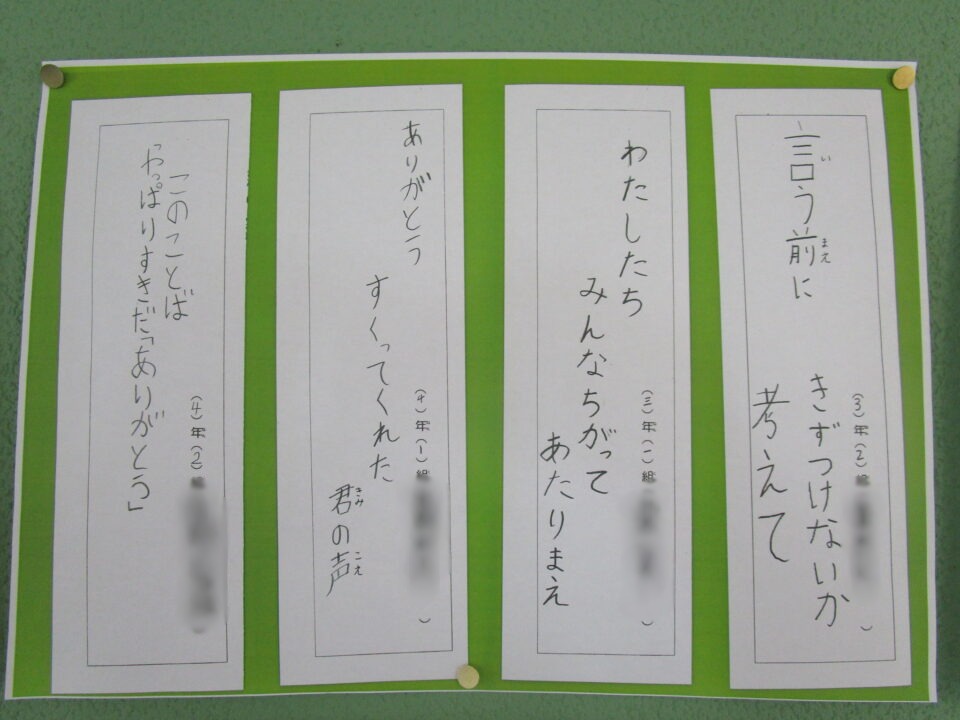 言う前に
きずつけないか
考えて
い
まえ
(3)年(2)組
)
わたしたち
みんなちがって
あたりまえ
(三)年(一)組
)
ありがとう
すくってくれた
君の声
きみ
こえ
(4)年(1)組
)
このことば
「やっぱりすきだ「ありがとう」
(4)年(2)組
)